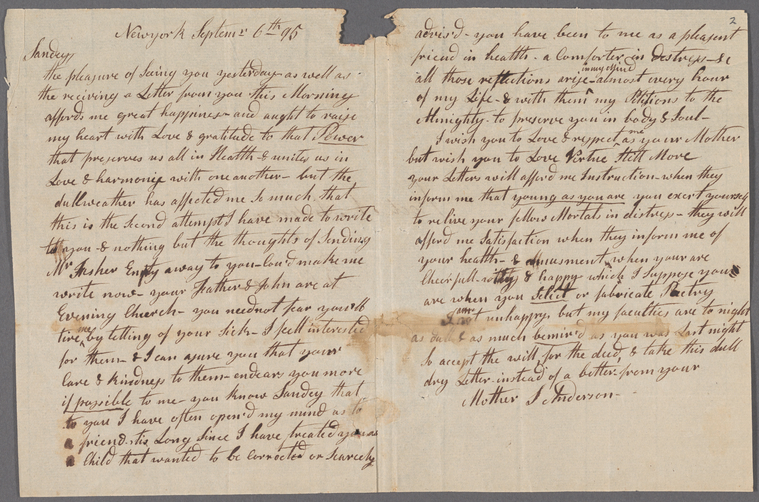 Newyork Septemr 6th 95
Sandey
the pleasure of Seing you yesterday as well as
the reciving a Letter from you this Morning
affords me great happiness and aught to raise
my heart with Love & gratitude to that Power
that preserves us all in Health & unites us in
Love & harmony with one another - but the
dull weather has affected me So much that
this is the Second attempt I have made to write
to you - & nothing but the thoughts of Sending
Mr Fisher Empty away to you - Cou'd make me
write now - your Father & John are at
Evening Church - you need not fear you'll
tire me by telling of your Sick - I feel interested
for them - & I can asure you that your
Care & kindness to them - endears you more
if possible to me - you know Sandey that
to you I have often open'd my mind as to
a friend - tis Long Since I have treated you as
a Child that wanted to be Corrected or Scarcely
2
advis'd - you have been to me as a pleasent
friend in health - a Comforter in distress - &
all those reflections arise in my mind almost every hour
of my Life - & with them my Petitions to the
Almighty - to preserve you in body & Soul -
I wish you to Love & respect me as your Mother
but wish you to Love Virtue Still More
your Letters will afford me Instruction when they
inform me that young as you are you exert yourself
to relive your fellow Mortals in distress - they will
afford me Satisfaction when they inform me of
your health - & amusment when your are
Cheirfull - witty & happy which I Suppose you
are when you Select or fabricate Poetry
I am not unhappy - but my faculties are to night
as dull & as much bemir'd as you was Last night
So accept the will for the deed, & take this dull
dry Letter instead of a better from your
Mother S Anderson -